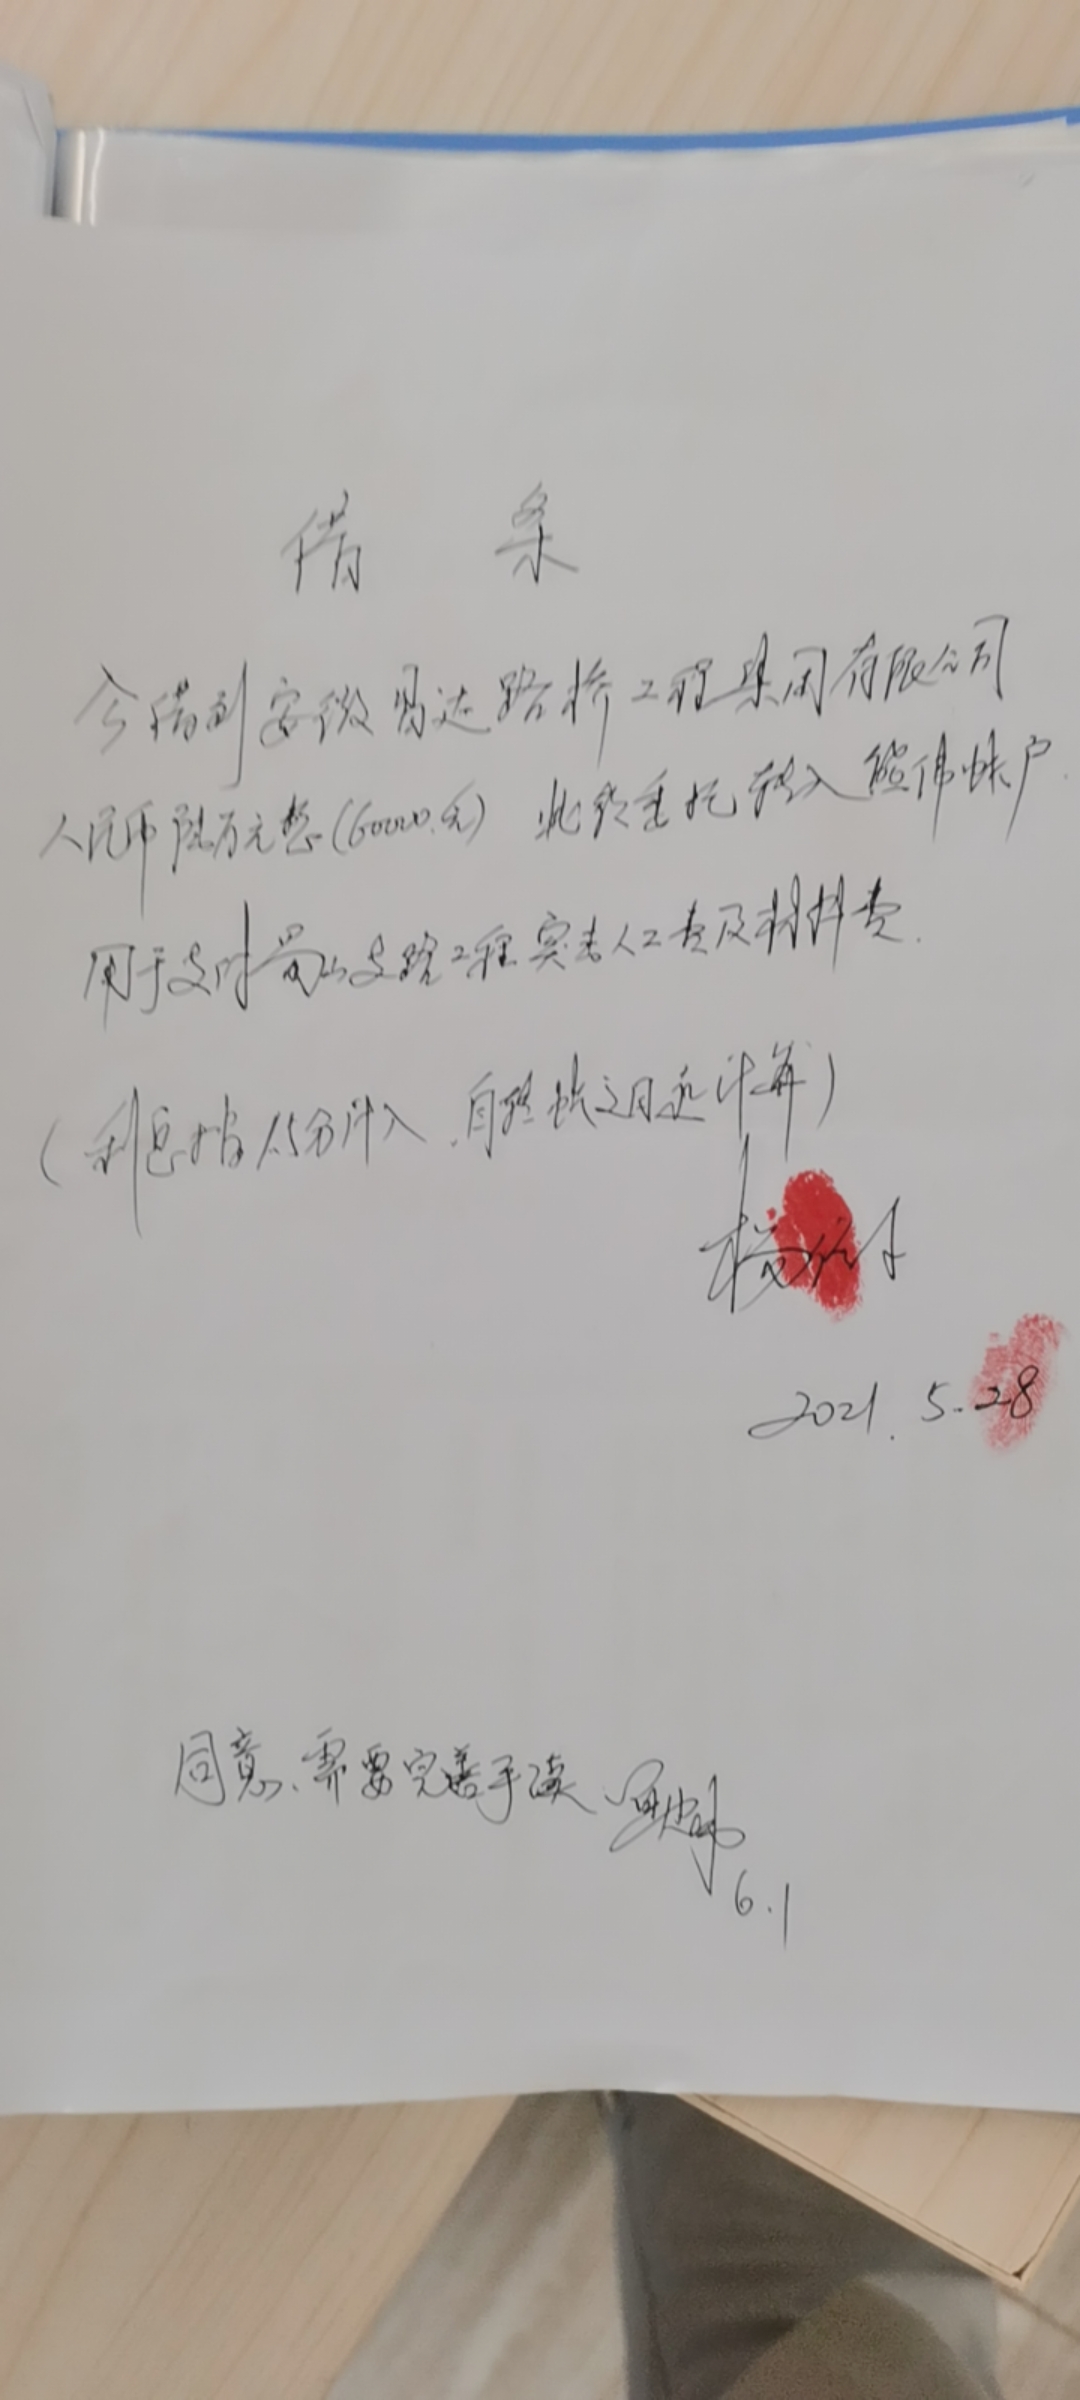 借 条
今借到安徽易达路桥工程集团有限公司
人民币陆万元整(60000.元) 此款委托转入熊伟帐户.
用于支付蜀山支路工程突击人工费及材料费.
(利息按1.5分计入.自转帐之日起计算)
杨
2021.5.28
同意、需要完善手续.
6.1